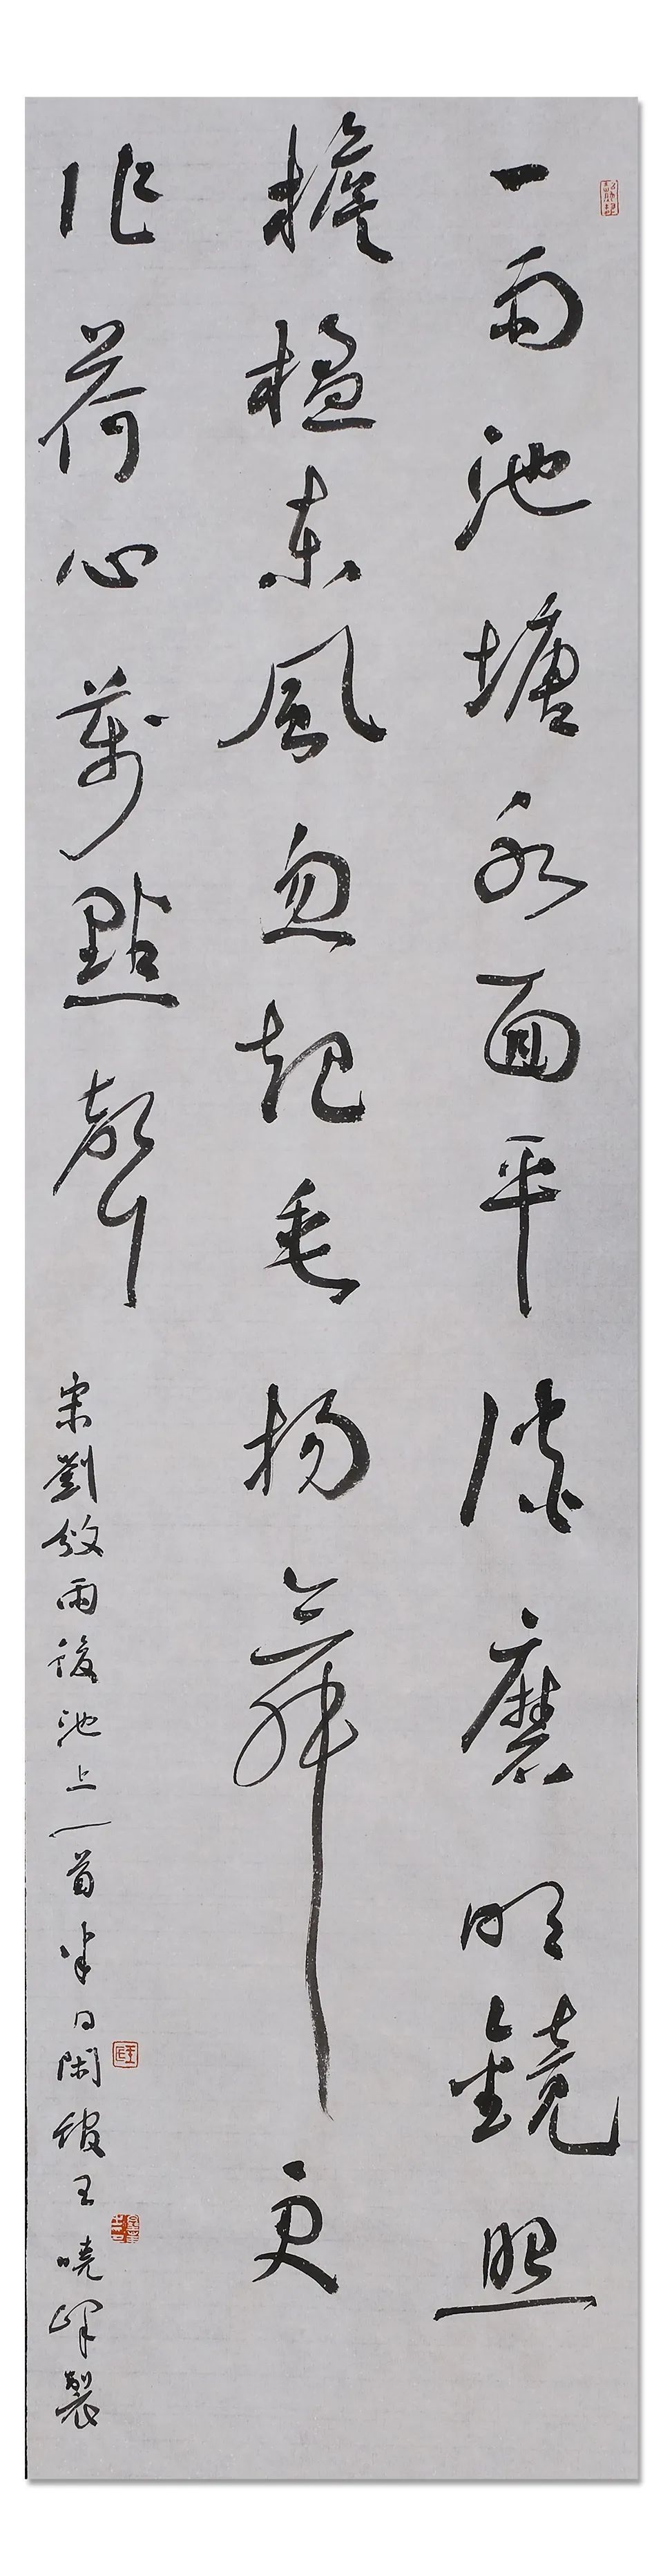 一雨池塘水面平淡磨明鏡照
檐楹東風忽起垂楊舞更
作荷心萬點聲
宋劉攽雨後池上一首半日閑館王曉峰製